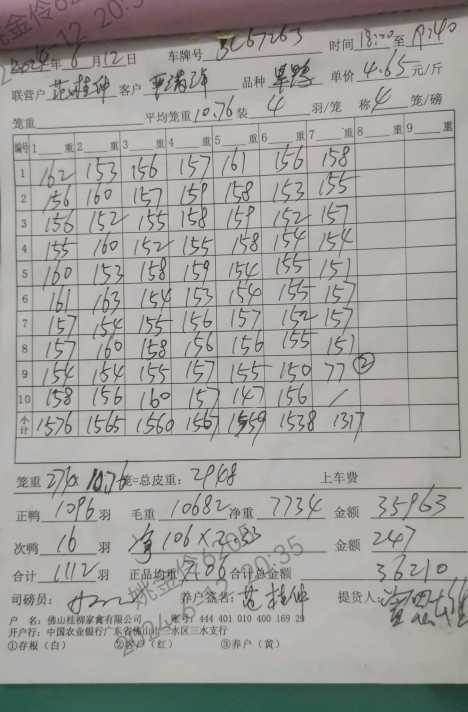 2024年6月12日 车牌号 时间18:20至19:40
联营户 范桂坤 客户 品种 单价4.65元/斤
笼重 平均笼重10.76装4羽/笼 称4笼/磅
编号 1 重 2 重 3 重 4 重 5 重 6 重 7 重 8 重 9 重
1 162 153 156 157 161 156 158
2 156 160 157 159 158 153 155
3 156 152 155 158 159 152 157
4 155 160 152 155 158 154 154
5 160 153 158 159 154 155 151
6 161 163 154 153 154 155 157
7 157 154 155 156 157 152 157
8 157 160 158 156 156 155 151
9 154 154 155 157 155 150 77 ②
10 158 156 160 157 147 156 /
小计 1576 1565 1560 1567 1559 1538 1317
笼重 274x10.76 笼=总皮重:2948 上车费
正鸭 1096 羽 毛重 10682 净重 7734 金额 35963
次鸭 16 羽 净 106 金额 247
合计 1112 羽 正品均重 7.06 合计总金额 36210
司磅员: 养户签名:范桂坤 提货人:
户 名:佛山桂柳家禽有限公司 账号:444 401 010 400 169 29
开户行:中国农业银行广东省佛山三水区三水支行
①存根(白) ②客户(红) ③养户(黄)